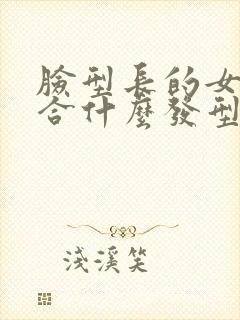 臉型長的女
合什麼發型
淺溪笑